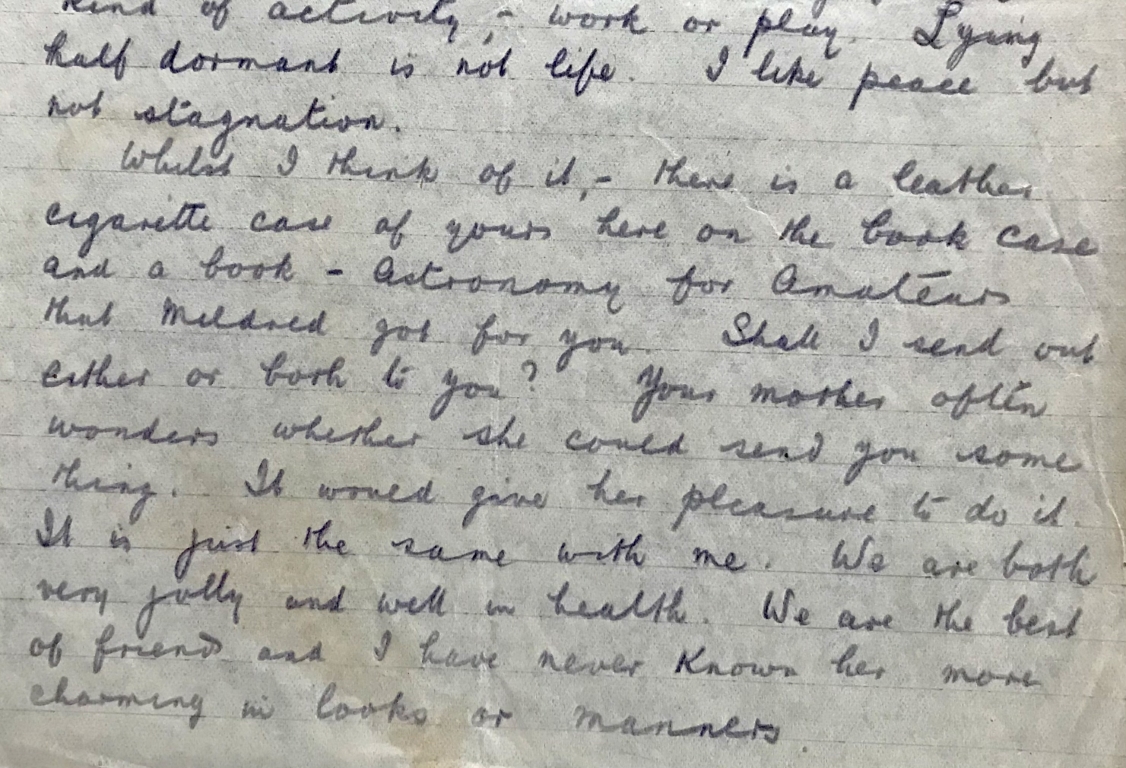 kind of activity, - work or play. Lying
half dormant is not life. I like peace but
not stagnation.
Whilst I think of it, - there is a leather
cigarette case of yours here on the book case
and a book - Astronomy for Amateurs
that Mildred got for you. Shall I send out
either or both to you? Your mother often
wonders whether she could send you some
thing. It would give her pleasure to do it.
It is just the same with me. We are both
very jolly and well in health. We are the best
of friends and I have never known her more
charming in looks or manners.